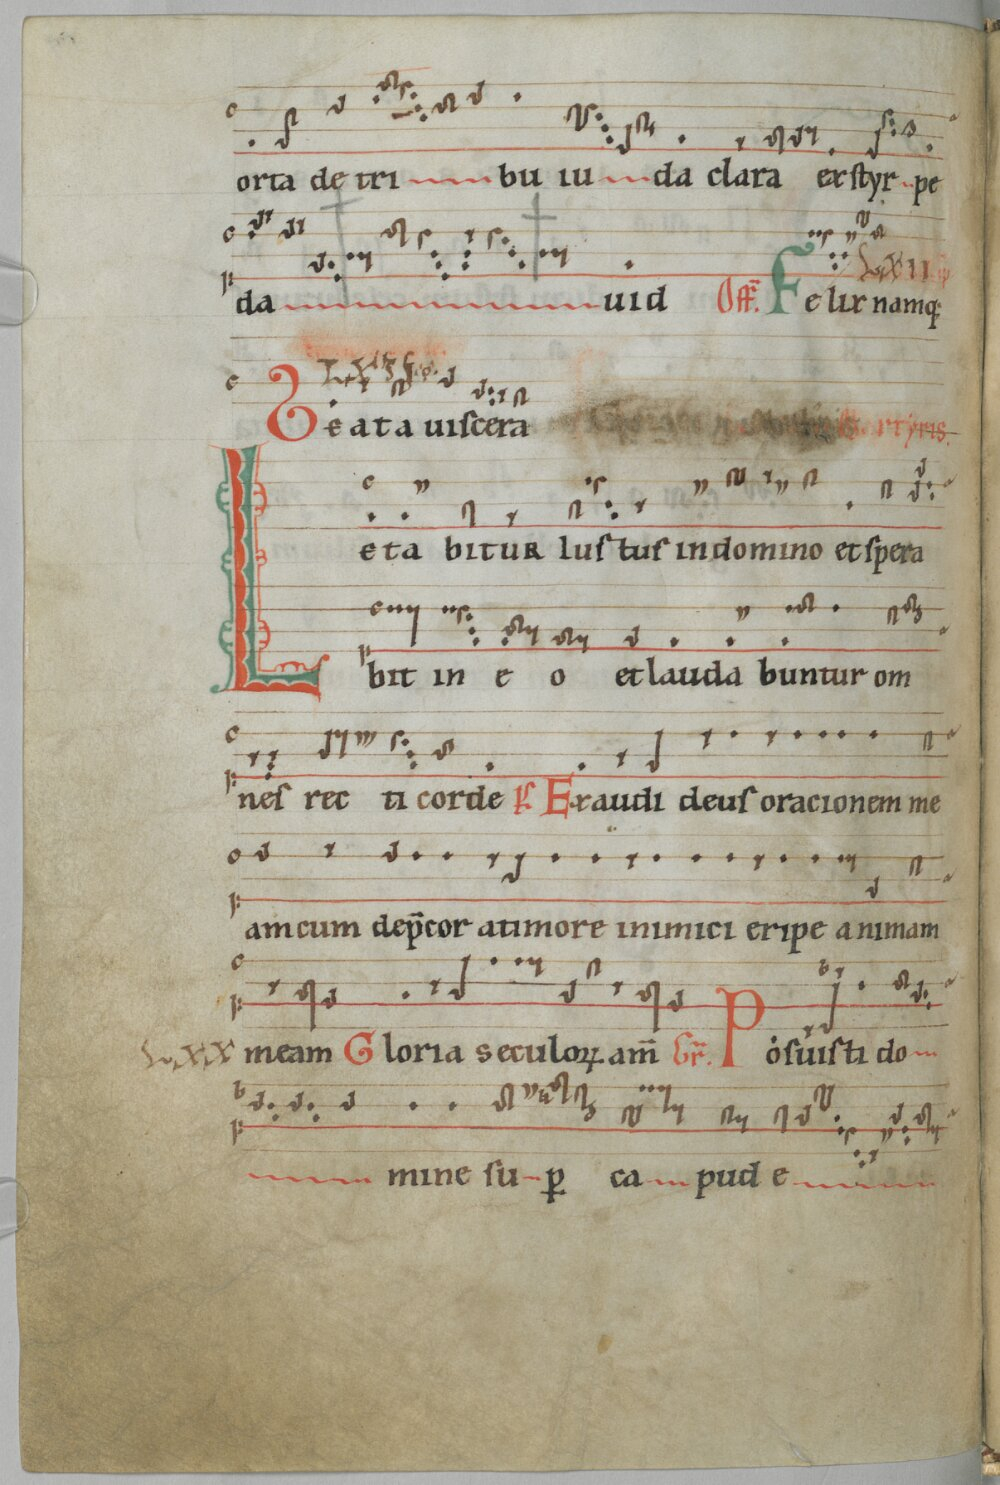 orta de tri bu iu da clara ex styr pe
da uid Off̄. Felix namq;
LXII
LXIII
Beata uiscera martyris.
Letabitur Iustus in domino et spera
bit in eo et lauda buntur om
nes rec ti corde ps Exaudi deus oracionem me
am cum dep̄cor a timore inimici eripe animam
LXX meam Gloria seculoꝝ am̄ Gr̄. Posuisti do
mine su ꝑ ca pud e